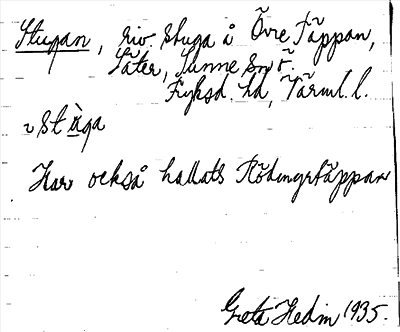 Stugan, riv. stuga å Övre Täppan,
Säter, Sunne sn ö.
Fryksd. hd, Värml. l.
~ st ùga
Har också kallats Rödingstäppan
Greta Hedin 1935.